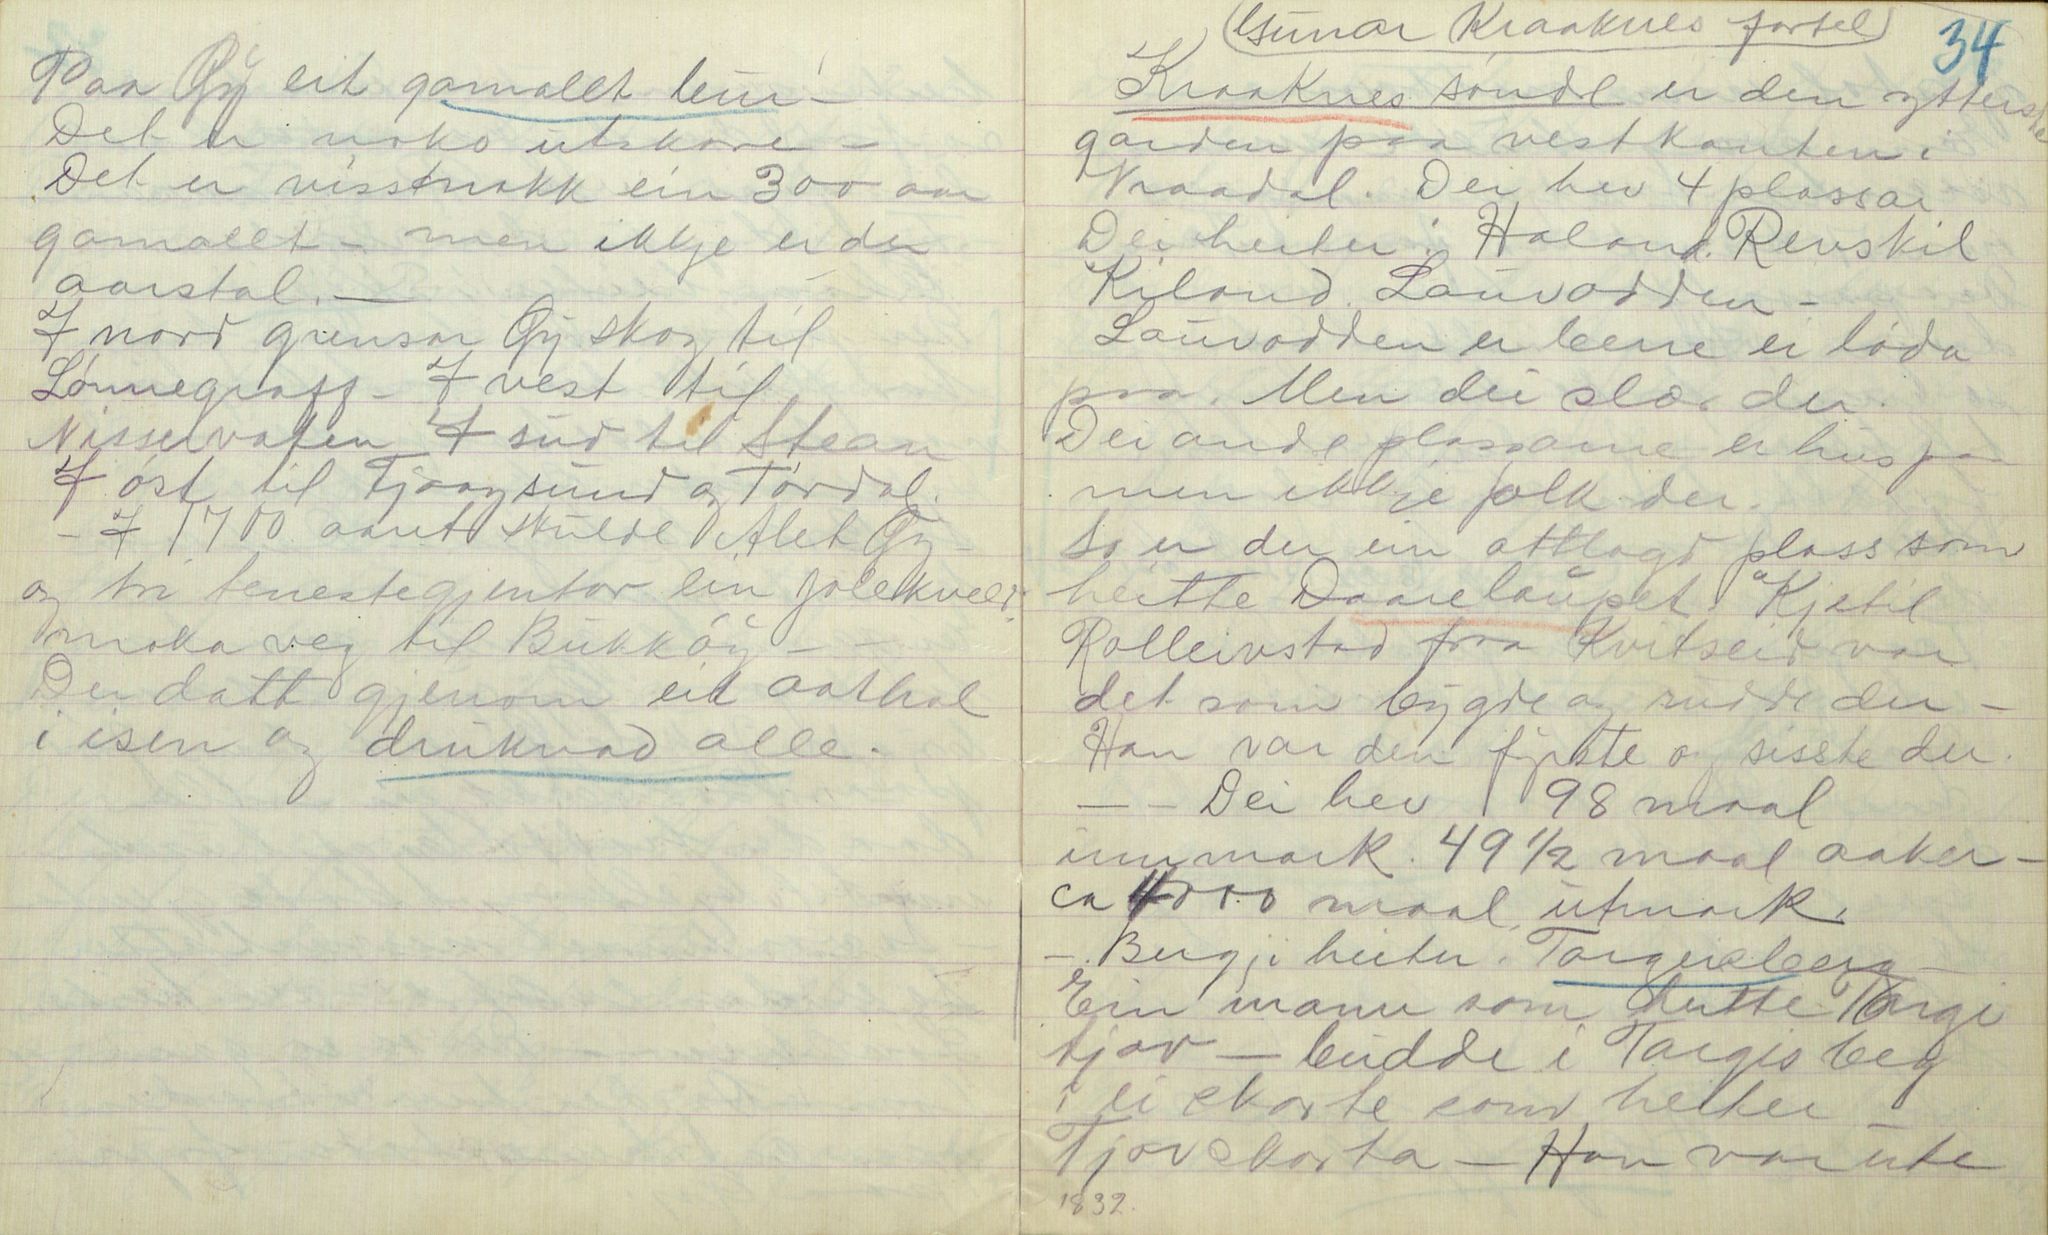 Paa Öy eit gamallt bur –
Det er noko utskore –
Det er visstnokk ein 300 aar
gamallt – men ikkje er der
aarstal. –
I nord grensar Öy skog til
Lónnegraff – I vest til
Nisservaten I sud til Stean
I óst til Tjaagsund og Tórdal.
– I 1700 aaret skulde Alet Öy
og tri tenestegjentor ein jolekveld
moka veg til Bukköy – –
Dei datt gjenom eit aathol
i isen og druknad alle.
(Gunar Kraaknes fortel)
34
Kraaknes sónde er den ytterste
garden paa vestkanten i
Vraadal. Dei hev 4 plassar
Dei heiter: Haland. Revskil
Kiland. Lauvodden –
Lauvodden er berre ei lóda
paa. Men dei slær der.
Dei andre plassarne er hus paa
men ikkje folk der.
So er der ein attlagd plass som
heitte Daarelaupet. Kjetil
Rolleivstad fraa Kvitseid var
det som bygde og rudde der –
Han var den fyrste og sisste der.
– – Dei hev 98 maal
innmark. 49 1/2 maal aaker –
ca 4000 maal utmark.
– Bergji heiter. Targeisberg –
Ein mann som heitte Targi
tjov – budde i Targisberg
i ei skorte som heiter
Tjovskorta – Han var ute
1832.